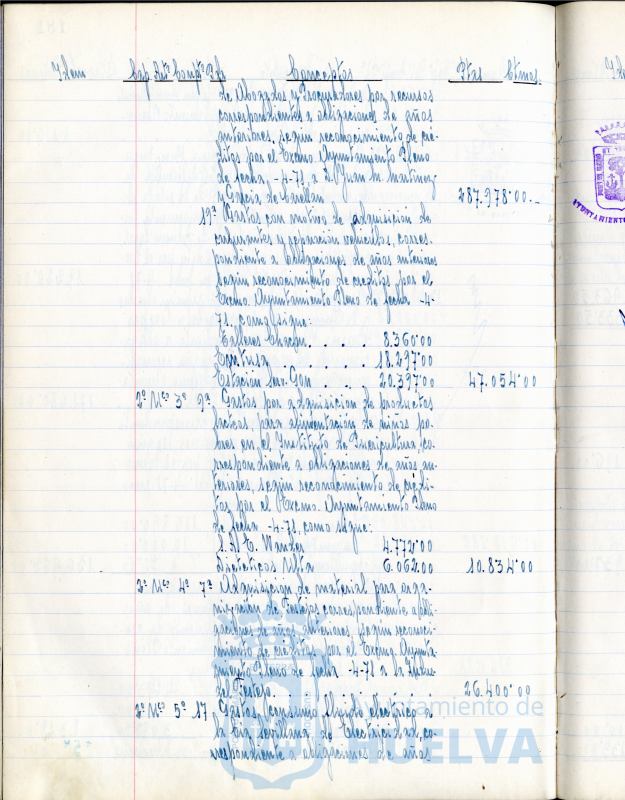 Idem Cap Artº Comptº Pda Conceptos Ptas Ctmos.
de Abogados y Procuradores por recursos
correspondientes a obligaciones de años
anteriores, segun reconocimiento de cre-
ditos por el Excmo Ayuntamiento Pleno
de fecha, -4-71, a D. Juan M. Martinez
y Garcia de 287.978'00.-
19ª Gastos con motivo de adquisicion de
carburantes y reparación vehiculos, corres-
pondiente a obligaciones de años anteriores
segun reconocimiento de creditos por el
Excmo. Ayuntamiento Pleno de fecha -4-
71, como sigue:
Talleres Chacon . . . . 8.360'00
. . . . . 18.297'00
Estacion Ser. Gon . . . . 20.397'00 47.054'00
2º Uco 3º 9ª Gastos por adquisicion de productos
lacteos, para alimentación de niños po-
bres en el Instituto de Puericultura, co-
rrespondiente a obligaciones de años an-
teriores, segun reconocimiento de credi-
tos por el Excmo. Ayuntamiento Pleno
de fecha -4-71, como sigue:
S. A. Wander 4.772'00
Dieteticos Ulta 6.062'00 10.834'00
2º Uco 4º 7ª Adquisicion de material para orga-
nización de Festejos correspondiente a obli-
gaciones de años anteriores, segun reconoci-
miento de creditos por el Excmo. Ayunta-
miento Pleno de fecha -4-71 a la
del Festejo. 26.400'00
2º Uco 5º 17 Gastos consumo fluido electrico a
la Cia Sevillana de Electricidad, co-
rrespondiente a obligaciones de años
Ayuntamiento de
HUELVA
AYUNTAMIENTO